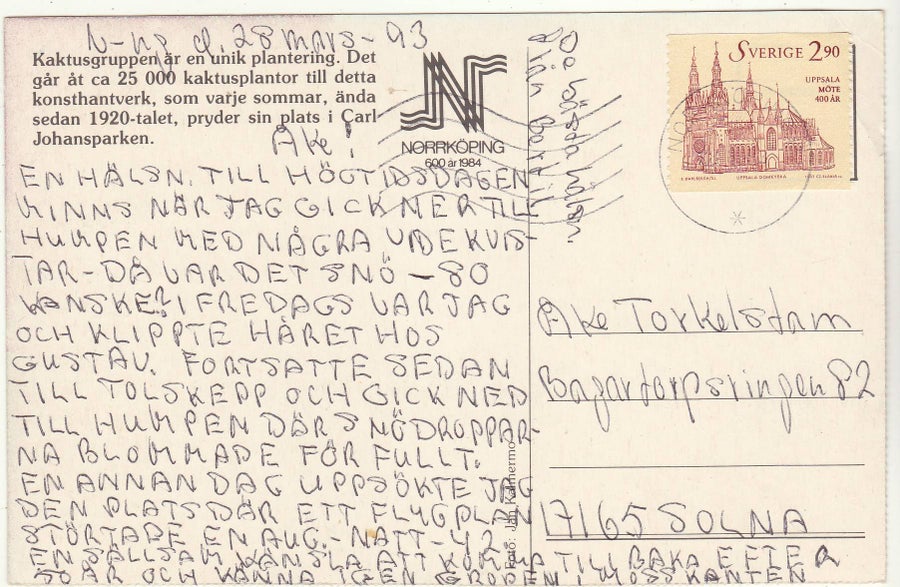 N-ng d. 28 mars - 93
Kaktusgruppen är en unik plantering. Det
går åt ca 25 000 kaktusplantor till detta
konsthantverk, som varje sommar, ända
sedan 1920-talet, pryder sin plats i Carl
Johansparken.
NORRKÖPING
600 år 1984
Åke!
EN HÄLSN. TILL HÖGTIDSDAGEN
MINNS NÄR JAG GICK NER TILL
HUMPEN MED NÅGRA VIDEKVIS-
TAR - DÅ VAR DET SNÖ - 80
KANSKE? I FREDAGS VAR JAG
OCH KLIPPTE HÅRET HOS
GUSTAV. FORTSATTE SEDAN
TILL TOLSKEPP OCH GICK NED
TILL HUMPEN DÄR SNÖDROPPAR-
NA BLOMMADE FÖR FULLT.
EN ANNAN DAG UPPSÖKTE JAG
DEN PLATS DÄR ETT FLYGPLAN
STÖRTADE EN AUG.-NATT -42.
EN SÄLLSAM KÄNSLA ATT KOMMA TILLBAKA EFTER
50 ÅR OCH KÄNNA IGEN GROPEN I MOSSKANTEN
De bästa hälsn.
från Bertil
Foto: Jan Kalmermo
SVERIGE 2.90
UPPSALA
MÖTE
400 ÅR
UPPSALA DOMKYRKA
Åke Torkelstam
Bagartorpsringen 82
17165 SOLNA